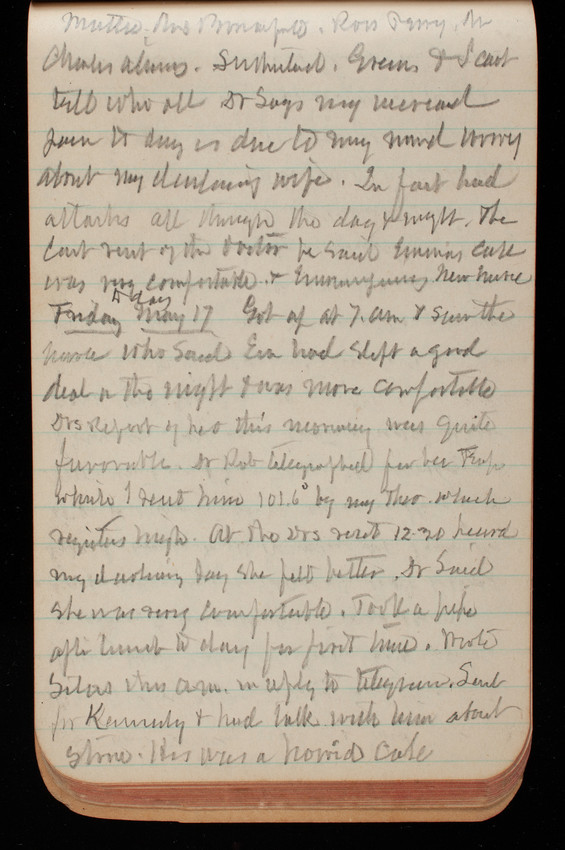 Mattie, Mrs
Charles Adams. Sutherland. Evans & I cant
tell who all Dr Says my increased
pain to day is due to my mind worry
about my darling wife. In fact had
attacks all through the day & night. The
last visit of the Doctor he said Emmas case
was very comfortable. & New nurse
Friday May 17 Got up at 7. am & saw the
to day
nurse who said Em had slept a good
deal in the night & was more comfortable
Drs Report of her this morning was quite
favorable. Dr Rob telegraphed for her Temp
while I sent him 101.6° by my Ther. which
registers high. At the Drs visit 12-20 heard
my darling say she felt better. Dr Said
she was very comfortable. Took a pipe
after lunch to day for first time. Wrote
Silas this a.m. in reply to telegram. Sent
for Kennedy & had talk with him about
stone. His was a horrid case